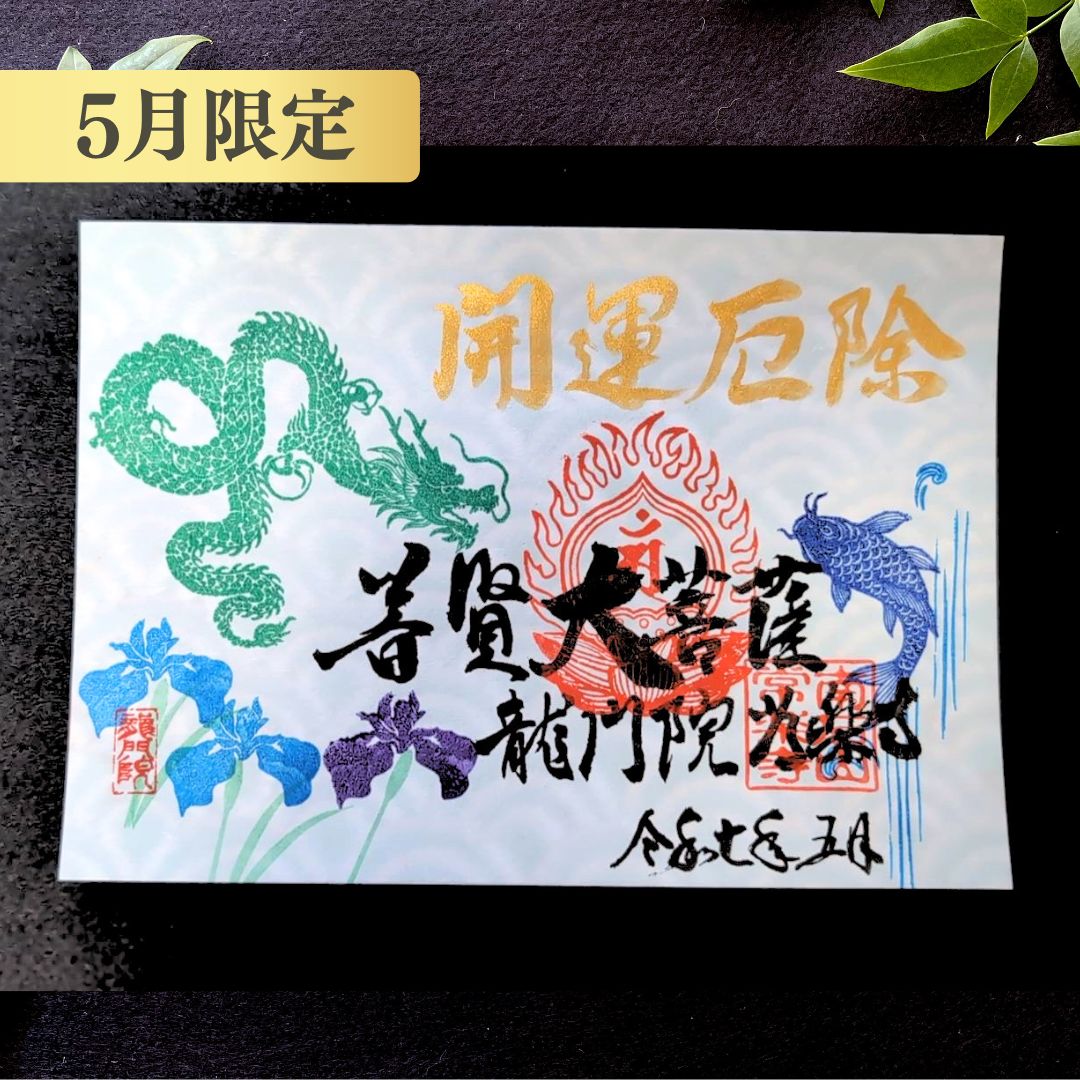 5月限定
開運厄除
普賢大菩薩
龍門院
令和七年 五月
龍門院